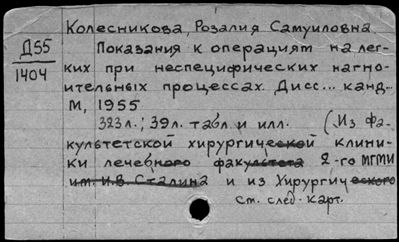 Колесникова, Розалия Самуиловна.
Д55
1404
Показания к операциям на лег-
ких при неспецифических нагно-
ительных процессах. Дисс... канд.
М, 1955
323л.; 39л. табл и илл. (Из фа-
культетской хирургической клини-
ки лечебного факультета 2-го МГМИ
им. И.В. Сталина и из Хирургического
см. след. карт.